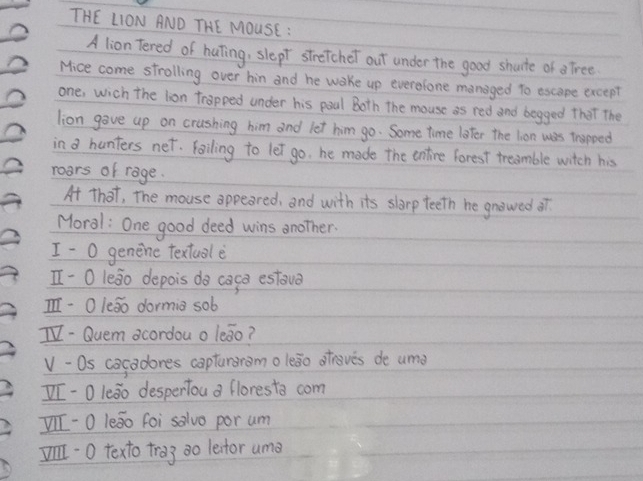 THE LION AND THE MOUSE:
A lion Tered of hating, slept stretchet out under the good shuite of a Tree.
Mice come strolling over hin and he wake up everefone managed to escape except
one, wich the lion trapped under his paul Both the mouse as red and begged that the
lion gave up on crushing him and let him go. Some time later the lion was trapped
in a hunters net. failing to let go, he made the entire forest treamble witch his
roars of rage.
At that, the mouse appeared, and with its slarp teeth he gnawed at.
Moral: One good deed wins another.
I - O genêne textual é
II - O leão depois da caça estava
III - O leão dormia sob
IV - Quem acordou o leão?
V - Os caçadores capturaram o leão através de uma
VI - O leão despertou a floresta com
VII - O leão foi salvo por um
VIII - O texto traz ao leitor uma